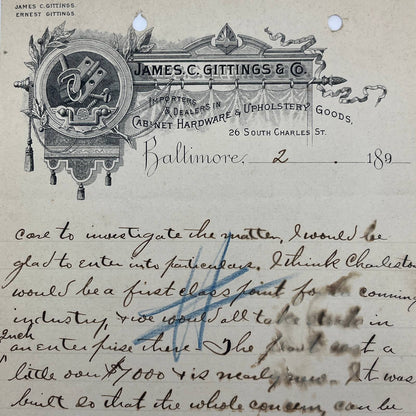 JAMES C. GITTINGS.
ERNEST GITTINGS.
JAMES C. GITTINGS & CO.
IMPORTERS
& DEALERS IN
CABINET HARDWARE & UPHOLSTERY GOODS,
26 SOUTH CHARLES ST.
Baltimore, 2 189
care to investigate the matter, I would be
glad to enter into particulars. I think Charleston
would be a first class point for the coming
industry, & we would all take stock in
such
an enterprise there. The plant cost a
little over $7000 & is nearly new. It was
built so that the whole concern can be